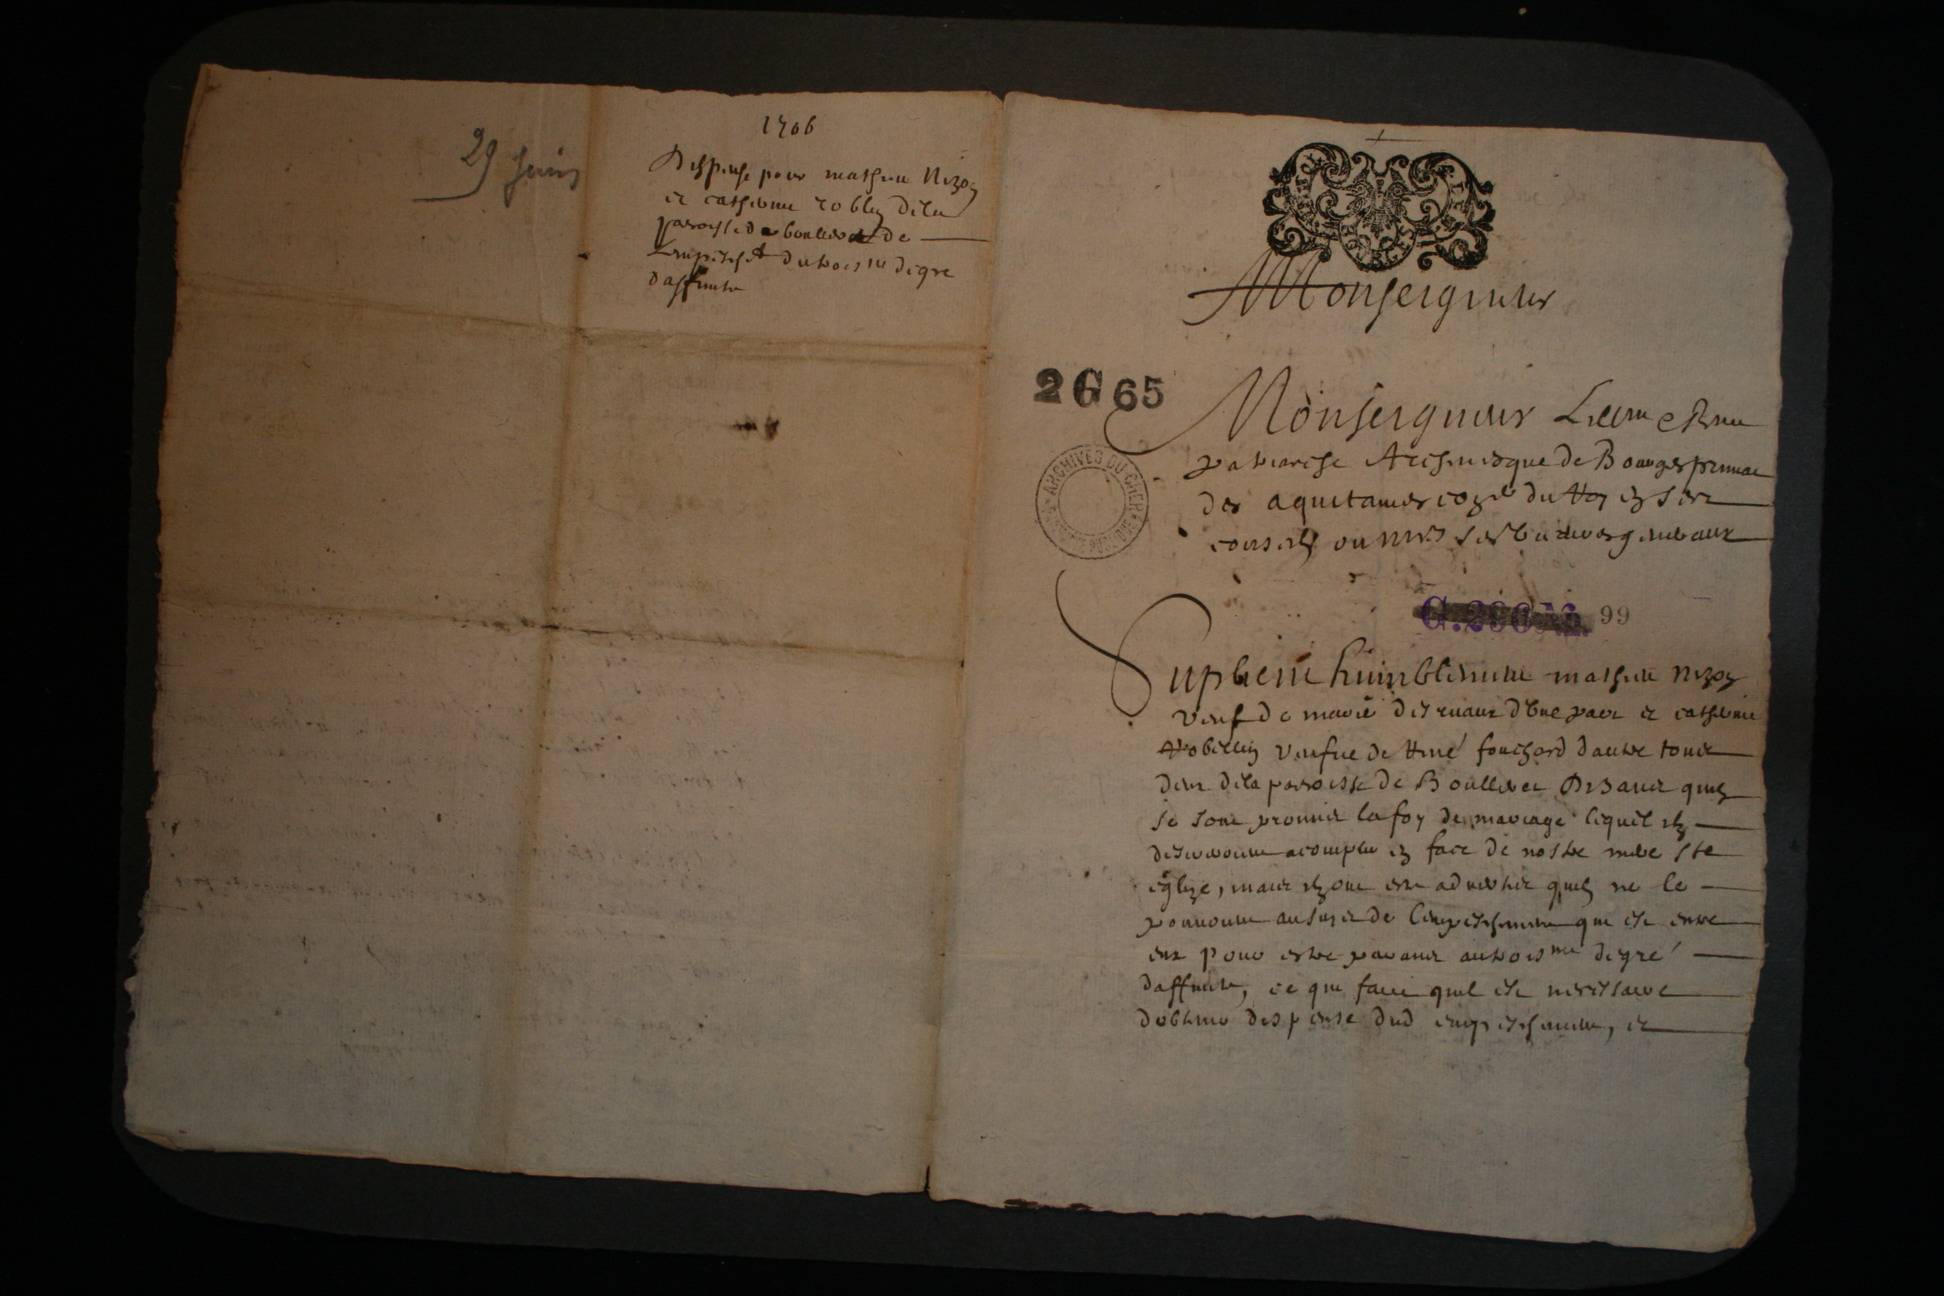 29 Juin
1706
Dispense pour mathieu Nizon
et catherine robley dela
paroisse de boulleret de
Lempeschemt du trois me degre
daffinite
Monseigneur
2 G 65
Monseigneur
patriarche Archevesque de Bourges primac
des aquitaines du Roy en ses
conseils ou mrs ses vicaires generaux
ARCHIVES DU CHER
99
Suplient humblement mathieu Nizon
veuf de marie d'une part et catherine
veufve de René fouchard dautre tous
deux dela paroisse de Boulleret Disant quilz
se sont promis la foy de mariage lequel ilz
desireroient acomplir en face de nostre mere ste
eglize, mais ilz ont este advertis quilz ne le
pouvoient au sujet de lempeschement qui est entre
eux pour estre parans au trois me degré
daffinite, ce qui faict quil est necessaire
dobtenir dispense dud empeschement, et